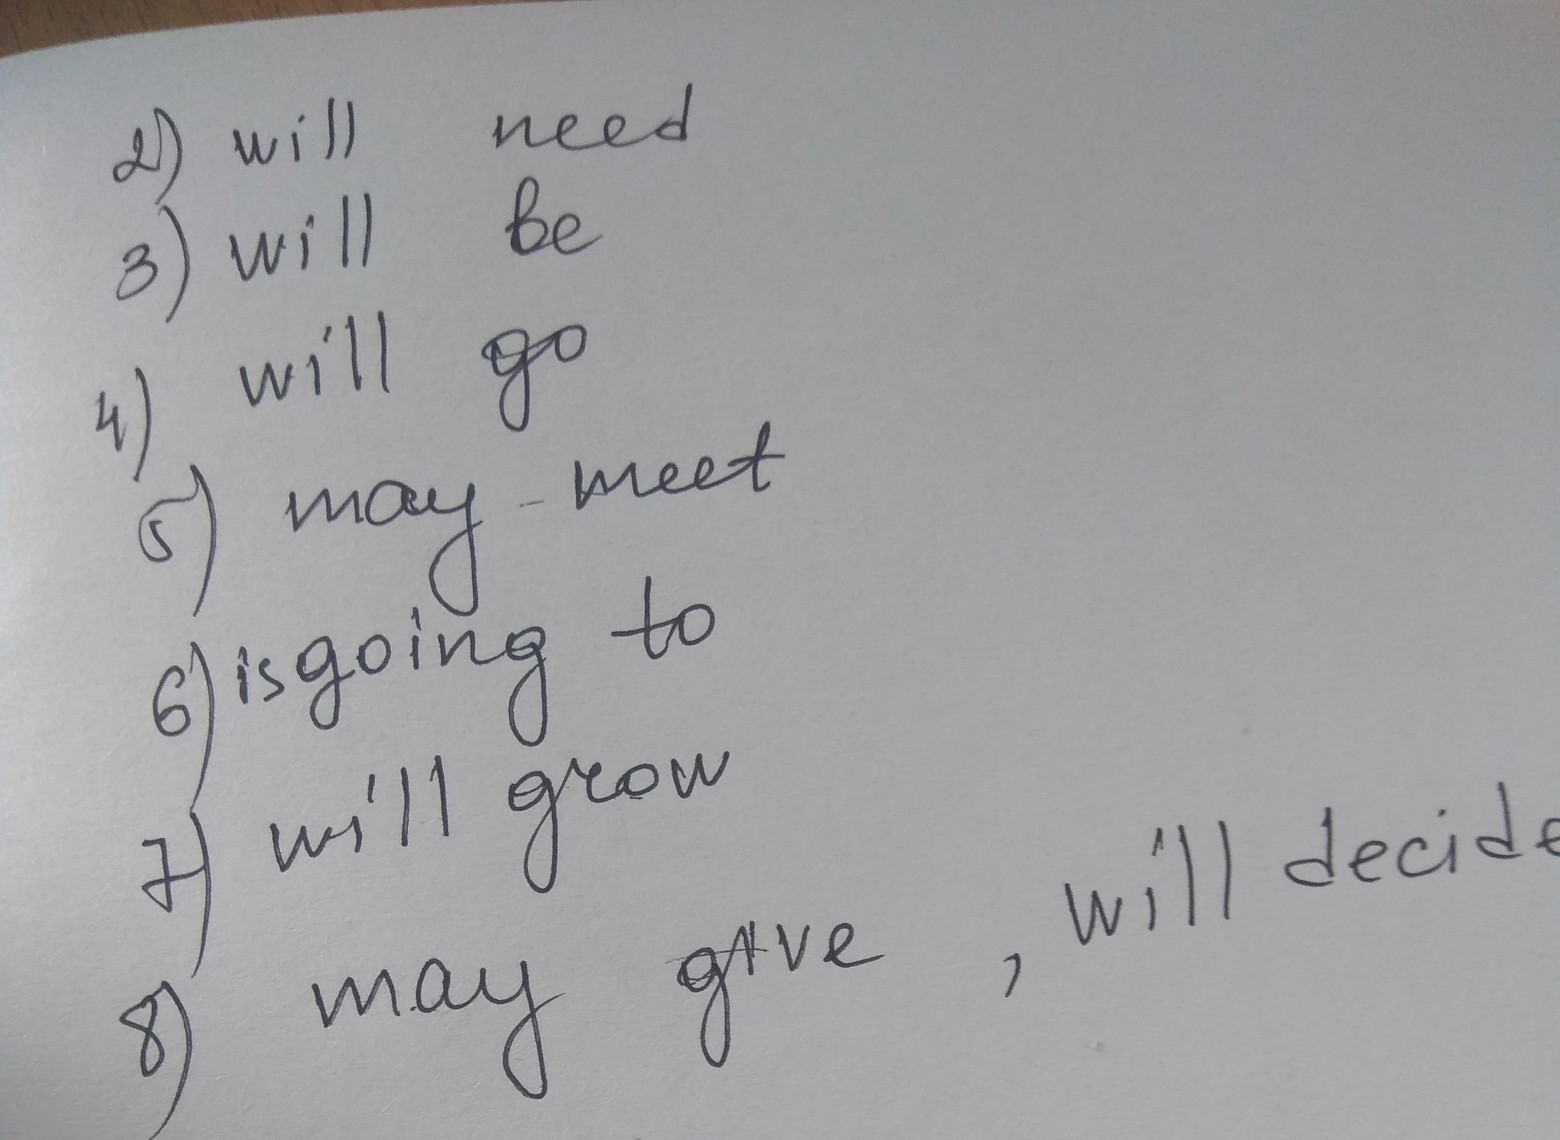 2) will need
3) will be
4) will go
5) may meet
6) is going to
7) will grow
8) may give, will decide